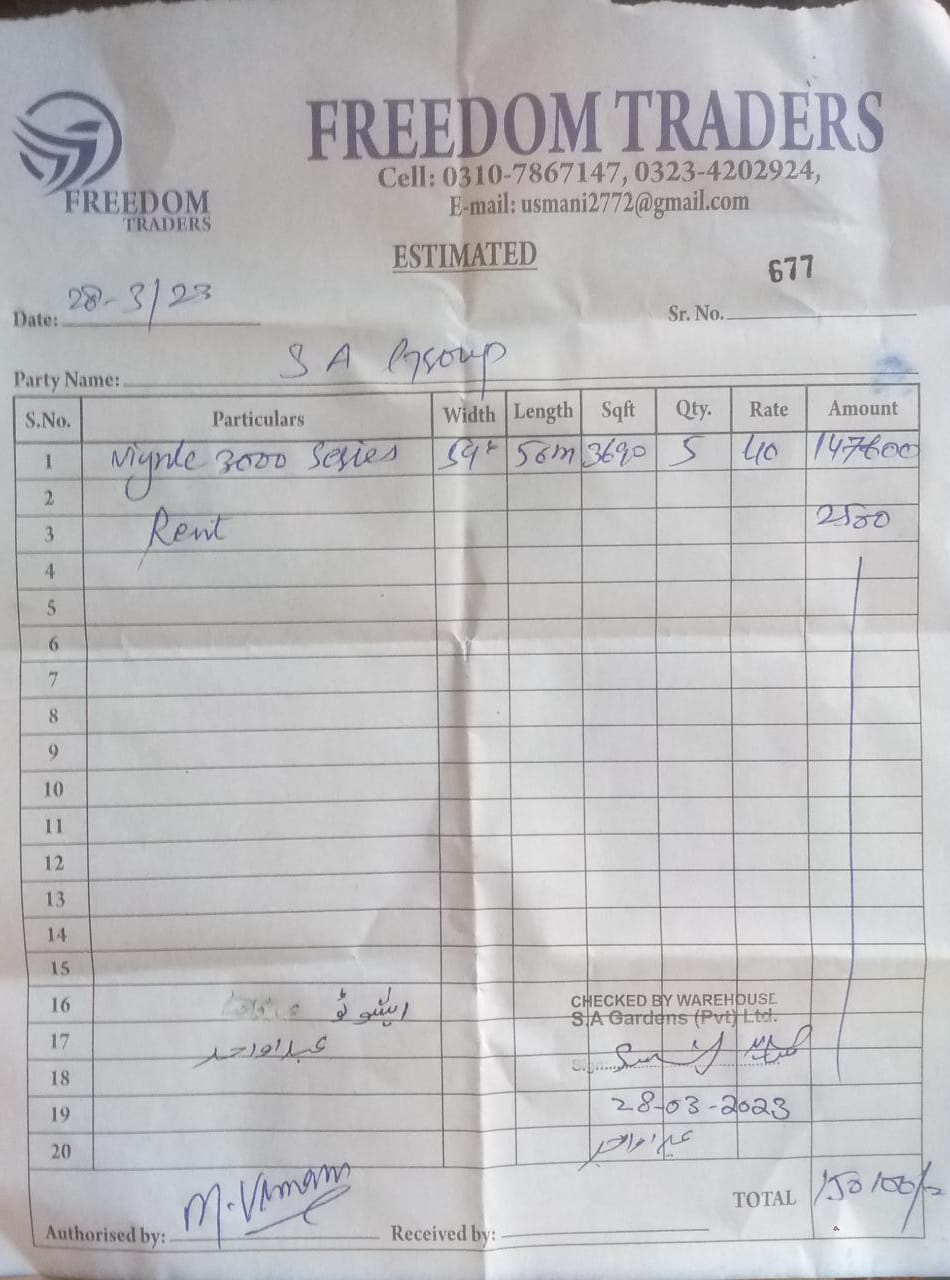 FREEDOM TRADERS
FREEDOM
TRADERS
Cell: 0310-7867147, 0323-4202924,
E-mail: usmani2772@gmail.com
ESTIMATED
677
Date: 28-3/23
Sr. No.
Party Name: S A Group
S.No. Particulars Width Length Sqft Qty. Rate Amount
1 3000 Series 50m 3690 5 40 147600
2
3 Rent 2500
4
5
6
7
8
9
10
11
12
13
14
15
16 ایشو ٹو
CHECKED BY WAREHOUSE
S.A Gardens (Pvt) Ltd.
17 عبدالواحد
18
19 28-03-2023
20 عبدالواحد
TOTAL 150100/=
Authorised by: Received by: